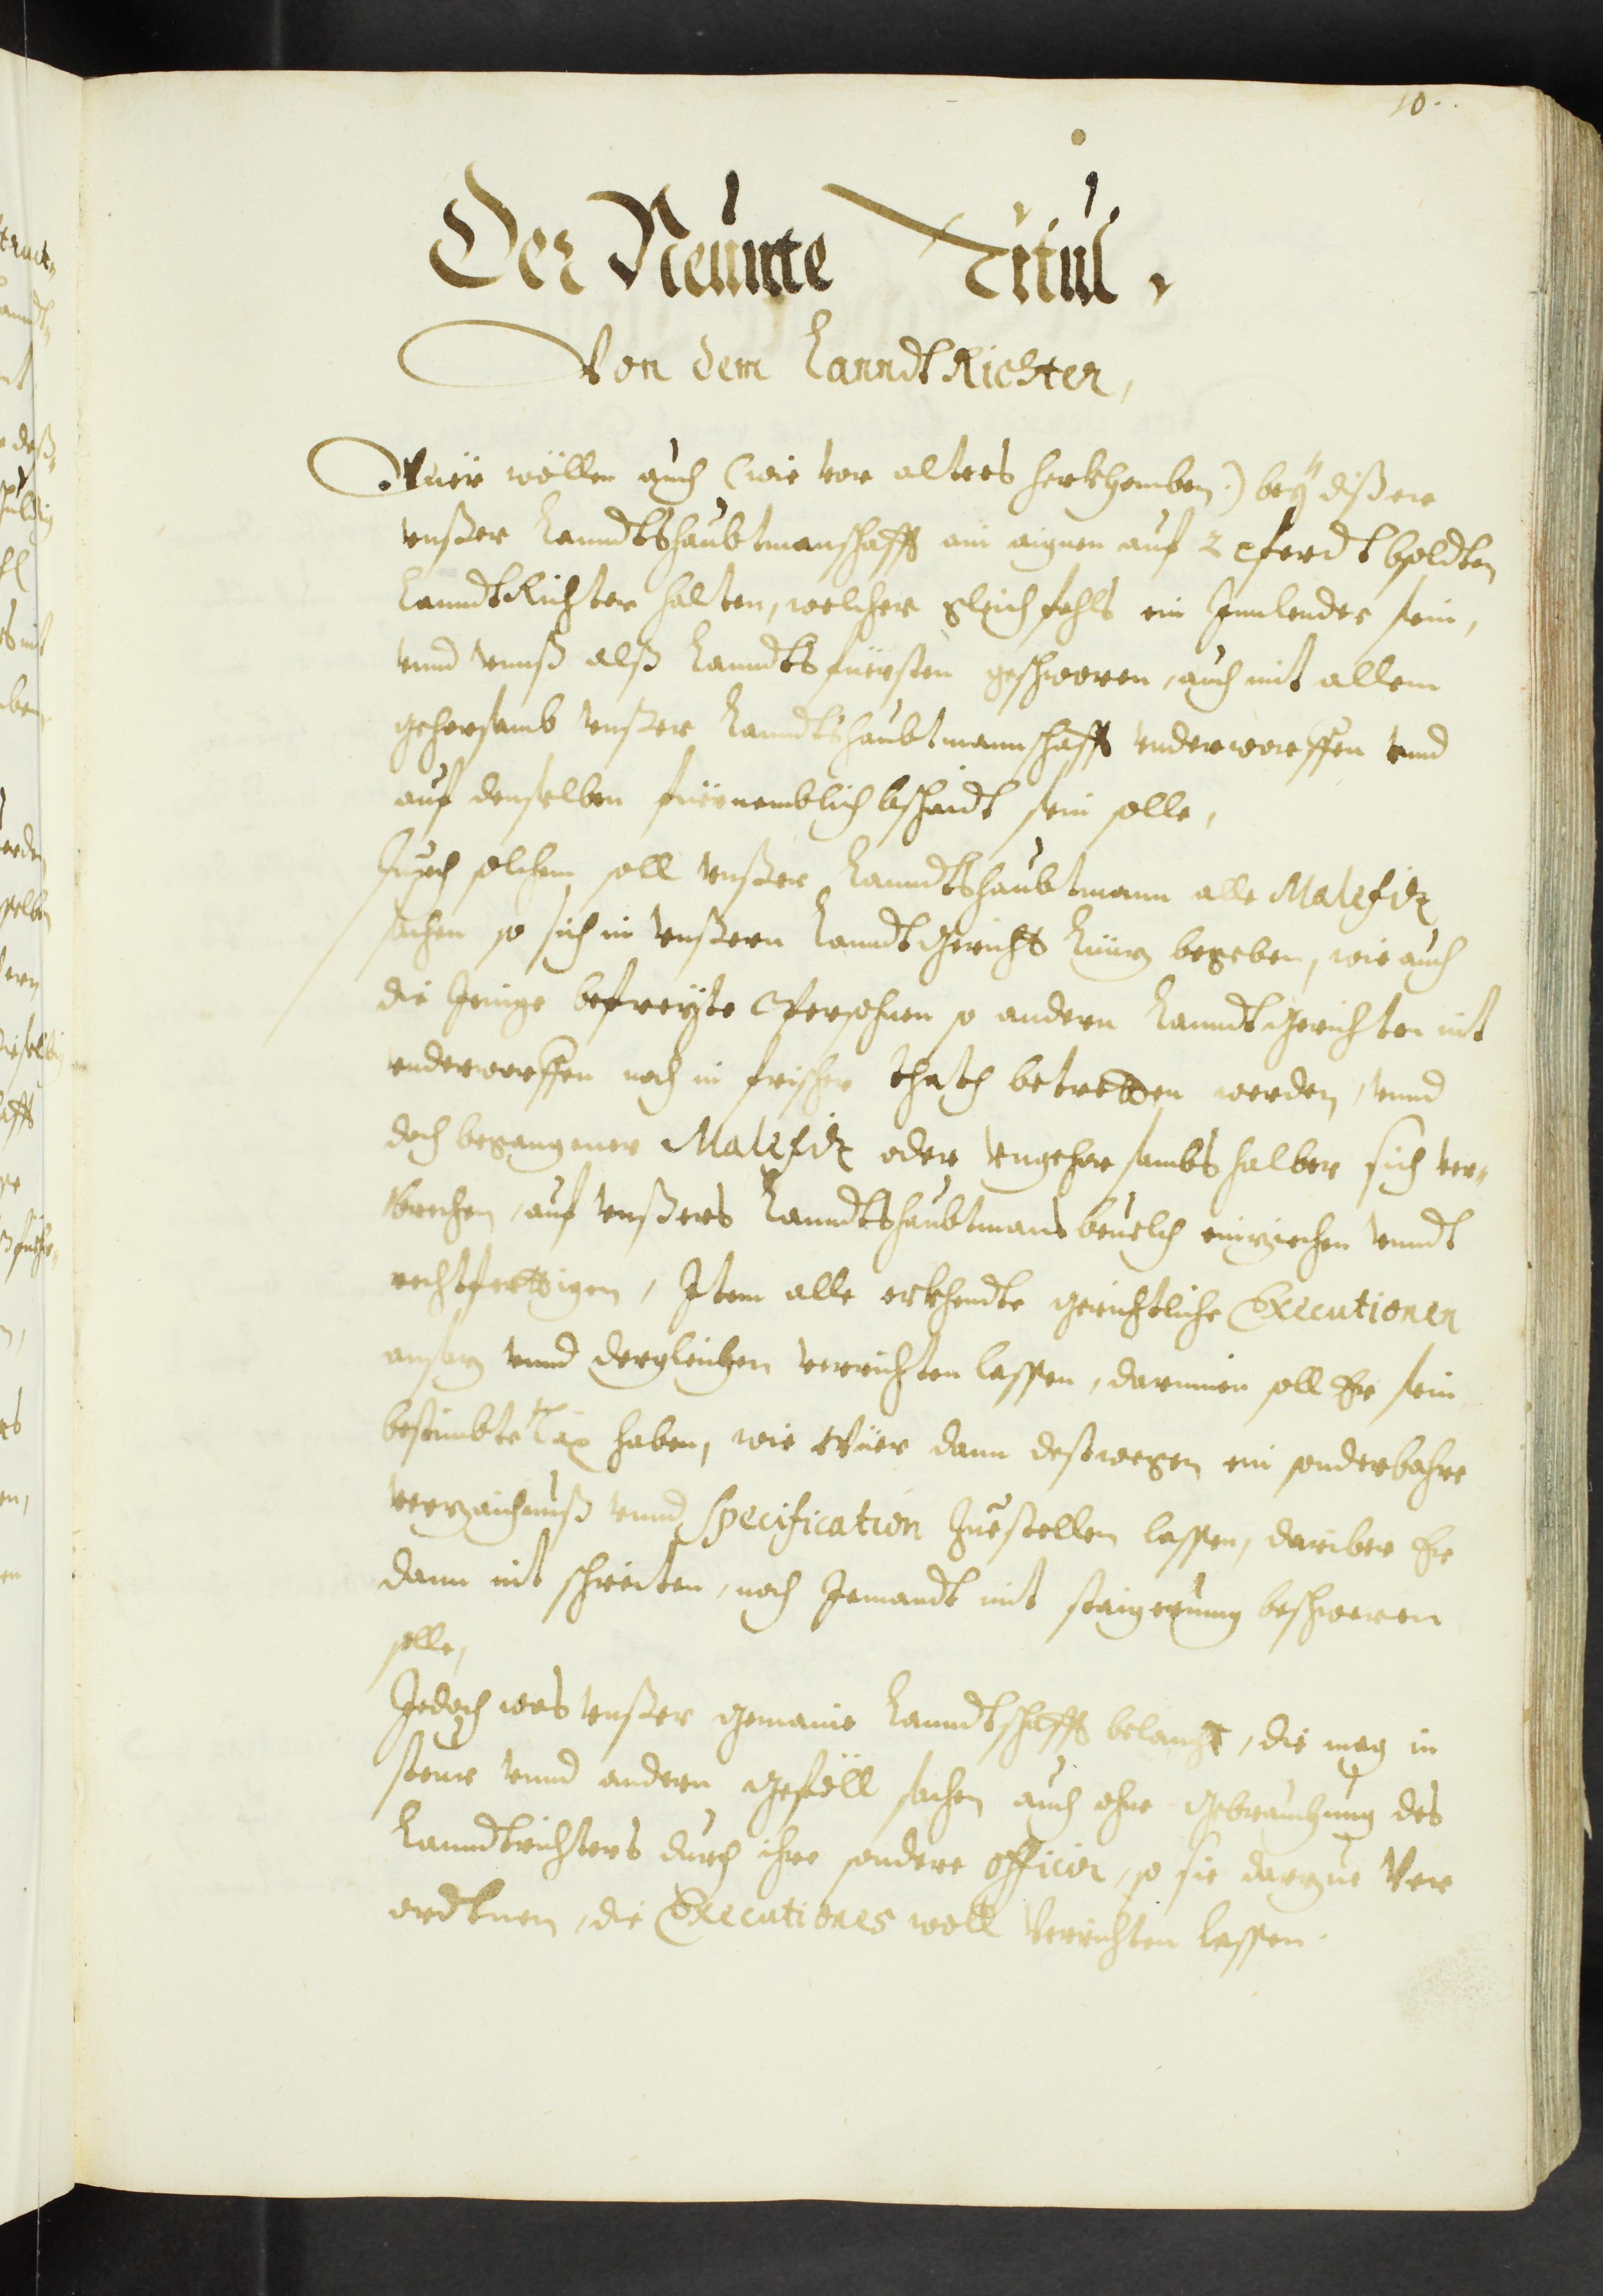 10.
Der Neunte Titul,
Von dem Lanndt Richter,
Wüer wöllen auch (wie vor alters herkhomben) bey dißer
vnßer Lanndtshaubtmanschafft ain aignen auf 2 Pferdt bsoldten
Lanndt Richter halten, welcher gleichfahls ein Innlender sein,
vnnd vnnß alß Lanndtsfüersten geschworen, auch mit allem
gehorsamb vnßer Lanndtshaubtmannschafft vnderworffen vnnd
auf denselben füernemblich bschaidt sein solle,
Durch solchen soll vnßer Lanndtshaubtmann alle Malefiz
sachen so sich in vnßern Lanndt Gericht begeben, wie auch
die Jenige befreyte Persohnen so andern Lanndt Gerichten nit
vnderworffen noch in frischer thath betretten werden, vnnd
doch begangener Malefiz oder vngehorsambs halber sich ver-
brechen, auf vnßers Lanndtshaubtmans beuelch einziechen vnndt
rechtferttigen, Item alle erkhendte gerichtliche Executionen
ansaz vnnd dergleichen verrichten lassen, darinnen soll Er sein
bestimbte Tax haben, wie Wüer dann deßwegen ein sonderbahre
verzaichnuß vnnd Specification Zuestellen lassen, dariber Er
dann nit schreiten, noch Jemandt mit staigerung beschweren
solle,
Jedoch was vnßer gemaine Lanndtschafft belangt, die mag in
steur vnnd andern geföll sachen auch ohne gebrauchung des
Lanndtrichters durch ihre sondere officier, so sie darzue Ver
ordtnen, die Executiones woll Verrichten lassen.